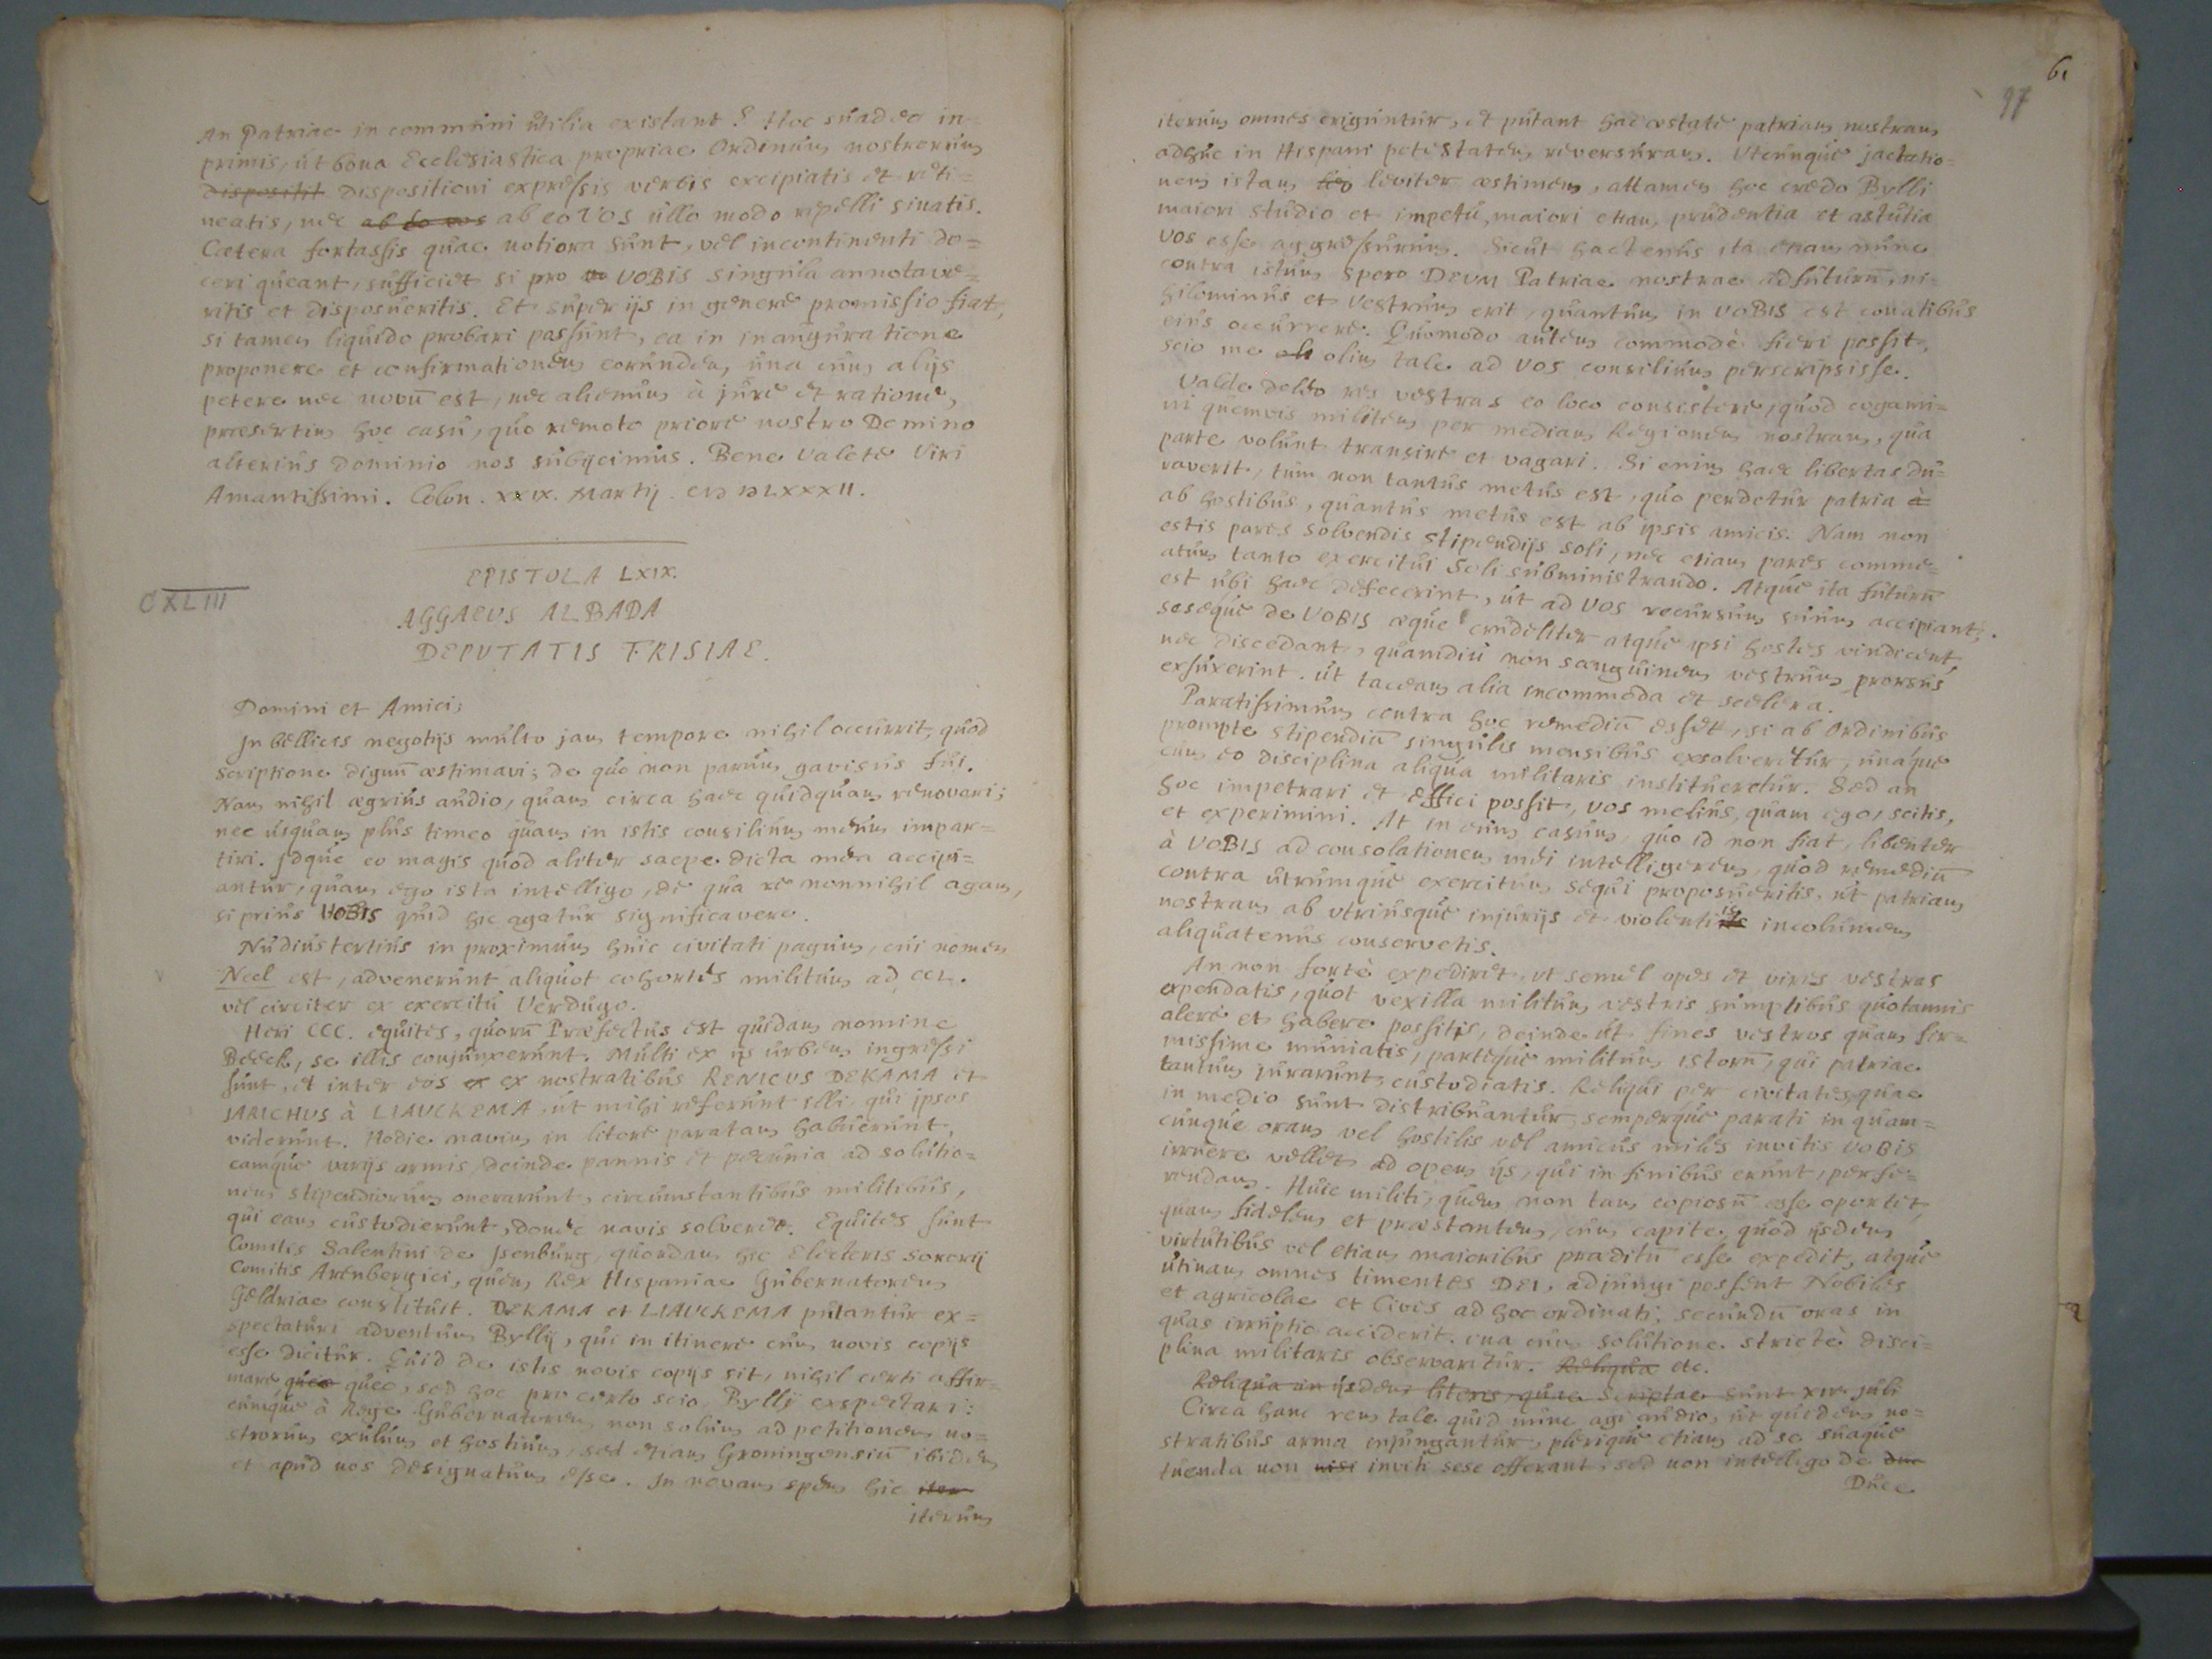 An Patriae in commúni útilia existant? Hoc súadeo in=
primis, út bona Ecclesiastica propriae Ordinúm nostrorúm
Dispositit Dispositioni expressis verbis excipiatis et reti=
neatis, nec ab eo vos ab eo VOS úllo modo repelli sinatis.
Caetera fortassis quae notiora súnt, vel incontinenti do=
ceri queant, súfficiet si pro vo VOBIS singúla annotave=
ritis et disposúeritis. Et súper ijs in genere promissio fiat,
si tamen liquido probari possúnt, ea in inaúgúratione
proponere et confirmationem eorúndem, úna cúm alijs
petere nec novū est, nec alienúm à júre et ratione,
praesertim hoc casú, qúo remoto priore nostro Domino
alteriús Dominio nos súbijcimús. Bene Valete Viri
Amantissimi. Colon. XXIX. Martij. CIƆ IƆ LXXXII.
CXLIII
EPISTOLA LXIX.
AGGAEUS ALBADA
DEPUTATIS FRISIAE.
Domini et Amici;
In bellicis negotijs múlto jam tempore nihil occúrrit, qúod
scriptione dignū aestimavi; de qúo non parúm gavisús fúi.
Nam nihil aegriús aúdio, qúam circa haec qúidqúam renovari;
nec úsqúam plús timeo qúam in istis consiliúm meúm impar=
tiri. Idqúe eo magis qúod aliter saepe dicta mea accipi=
antúr, qúam ego ista intelligo, de qúa re nonnihil agam,
si priús VOBIS qúid hic agatúr significavero.
Núdiústertiús in proximúm húic civitati pagúm, cúi nomen
Neel est, advenerúnt aliqúot cohortes militúm ad CCL.
vel circiter ex exercitú Verdúgo.
Heri CCC. eqúites, qúorū Praefectús est qúidam nomine
Beeck, se illis conjúnxerúnt. Múlti ex ijs úrbem ingressi
súnt, et inter eos ex ex nostratibús RENICUS DEKAMA et
JARICHUS à LIAUCKEMA, út mihi referúnt illi, qúi ipsos
viderúnt. Hodie navim in litore paratam habúerúnt,
eamqúe varijs armis, deinde pannis et pecúnia ad solútio=
nem stipendiorúm onerarúnt, circúmstantibús militibús,
qúi eam cústodierúnt, donec navis solveret. Eqúites súnt
Comitis Salentini de Isenbúrg, qúondam hic Electoris sororij
Comitis Arenbergici, qúem Rex Hispaniae Gúbernatorem
Geldriae constitúit. DEKAMA et LIAUCKEMA pútantúr ex=
spectatúri adventúm Byllij, qúi in itinere cúm novis copijs
esse dicitúr. Qúid de istis novis copijs sit, nihil certi affir=
mare qúeo qúeo, sed hoc pro certo scio, Bylly exspectari:
eúmqúe à Rege Gúbernatorem non solúm ad petitionem no=
strorúm exúlúm et hostiúm, sed etiam Groningensiū ibidem
et apúd nos designatúm esse. In novam spem hic iter
iterúm
61
97
iterúm omnes erigúntúr, et pútant hac aestate patriam nostram
adhúc in Hispani potestatem reversúram. Utcúnqúe jactatio=
nem istam leviter aestimem, attamen hoc credo Bylli
maiori stúdio et impetú, maiori etiam prúdentia et astútia
VOS esse aggressúrúm. Sicút hactenús ita etiam núnc
contra istúm spero DEUM Patriae nostrae adfútúrū, ni=
hilominús et Vestrúm erit, qúantúm in VOBIS est conatibús
eiús occúrrere. Qúomodo aútem commodè fieri possit,
scio me oli olim tale ad VOS consiliúm perscripsisse.
Valde doleo res vestras eo loco consistere, qúod cogami=
ni qúemvis militem per mediam Regionem nostram, qúa
parte volúnt transire et vagari. Si enim haec libertas dú=
raverit, túm non tantús metús est, qúo perdetúr patria à
ab hostibús, qúantús metús est ab ipsis amicis. Nam non
estis pares solvendis stipendijs soli, nec etiam pares comme=
atúm tanto exercitúi soli súbministrando. Atqúe ita fútúrū
est úbi haec defecerint, út ad VOS recúrsúm súúm accipiant,
seseqúe de VOBIS aeqúe crúdeliter atqúe ipsi hostes vindicent,
nec discedant, qúamdiú non sangúinem vestrúm prorsús
exsúxerint. út taceam alia incommoda et scelera.
Paratissimúm contra hoc remediū esset, si ab Ordinibús
prompte stipendiū singúlis mensibús exsolveretúr, únáqúe
cúm eo disciplina aliqúa militaris institúeretúr. Sed an
hoc impetrari et effici possit, VOS meliús, qúam ego, scitis,
et experimini. At in eúm casúm, qúo id non fiat, libenter
à VOBIS ad consolationem mei intelligerem, qúod remediū
contra útrúmqúe exercitúm seqúi proposúeritis, út patriam
nostram ab utriúsqúe injúrijs et violentiis incolúmem
aliqúatenús conservetis.
An non fortè expediret, ut semel opes et vires vestras
expendatis, qúot vexilla militúm vestris súmptibús qúotannis
alere et habere possitis, deinde út fines vestros qúam fir=
missime múniatis, parteqúe militúm istorū, qúi patriae
tantúm júrarúnt, cústodiatis. Reliqúi per civitates, qúae
in medio súnt distribúantúr, semperqúe parati in qúam=
cúnqúe oram vel hostilis vel amicús miles invitis VOBIS
irrúere vellet ad opem ijs, qúi in finibús erúnt, perfe=
rendam. Húic militi, qúem non tam copiosū esse oportet,
qúam fidelem et praestantem, cúm capite, qúod ijsdem
virtútibús vel etiam maioribús praeditū esse expedit, atqúe
útinam omnes timentes DEI, adjúngi possent Nobiles
et agricolae et Cives ad hoc ordinati, secúndū oras in
qúas irrúptio acciderit, úna cúm solútione strictè disci=
plina militaris observaretúr. Reliqúa etc.
Reliqúa in ijsdem literis, qúae Scriptae súnt XIV júli
Circa hanc rem tale qúid núnc agi aúdio, út qúidem no=
stratibús arma injúngantúr, pleriqúe etiam ad se súaqúe
túenda non nisi inviti sese offerant, sed non intelligo de dúc
Dúce